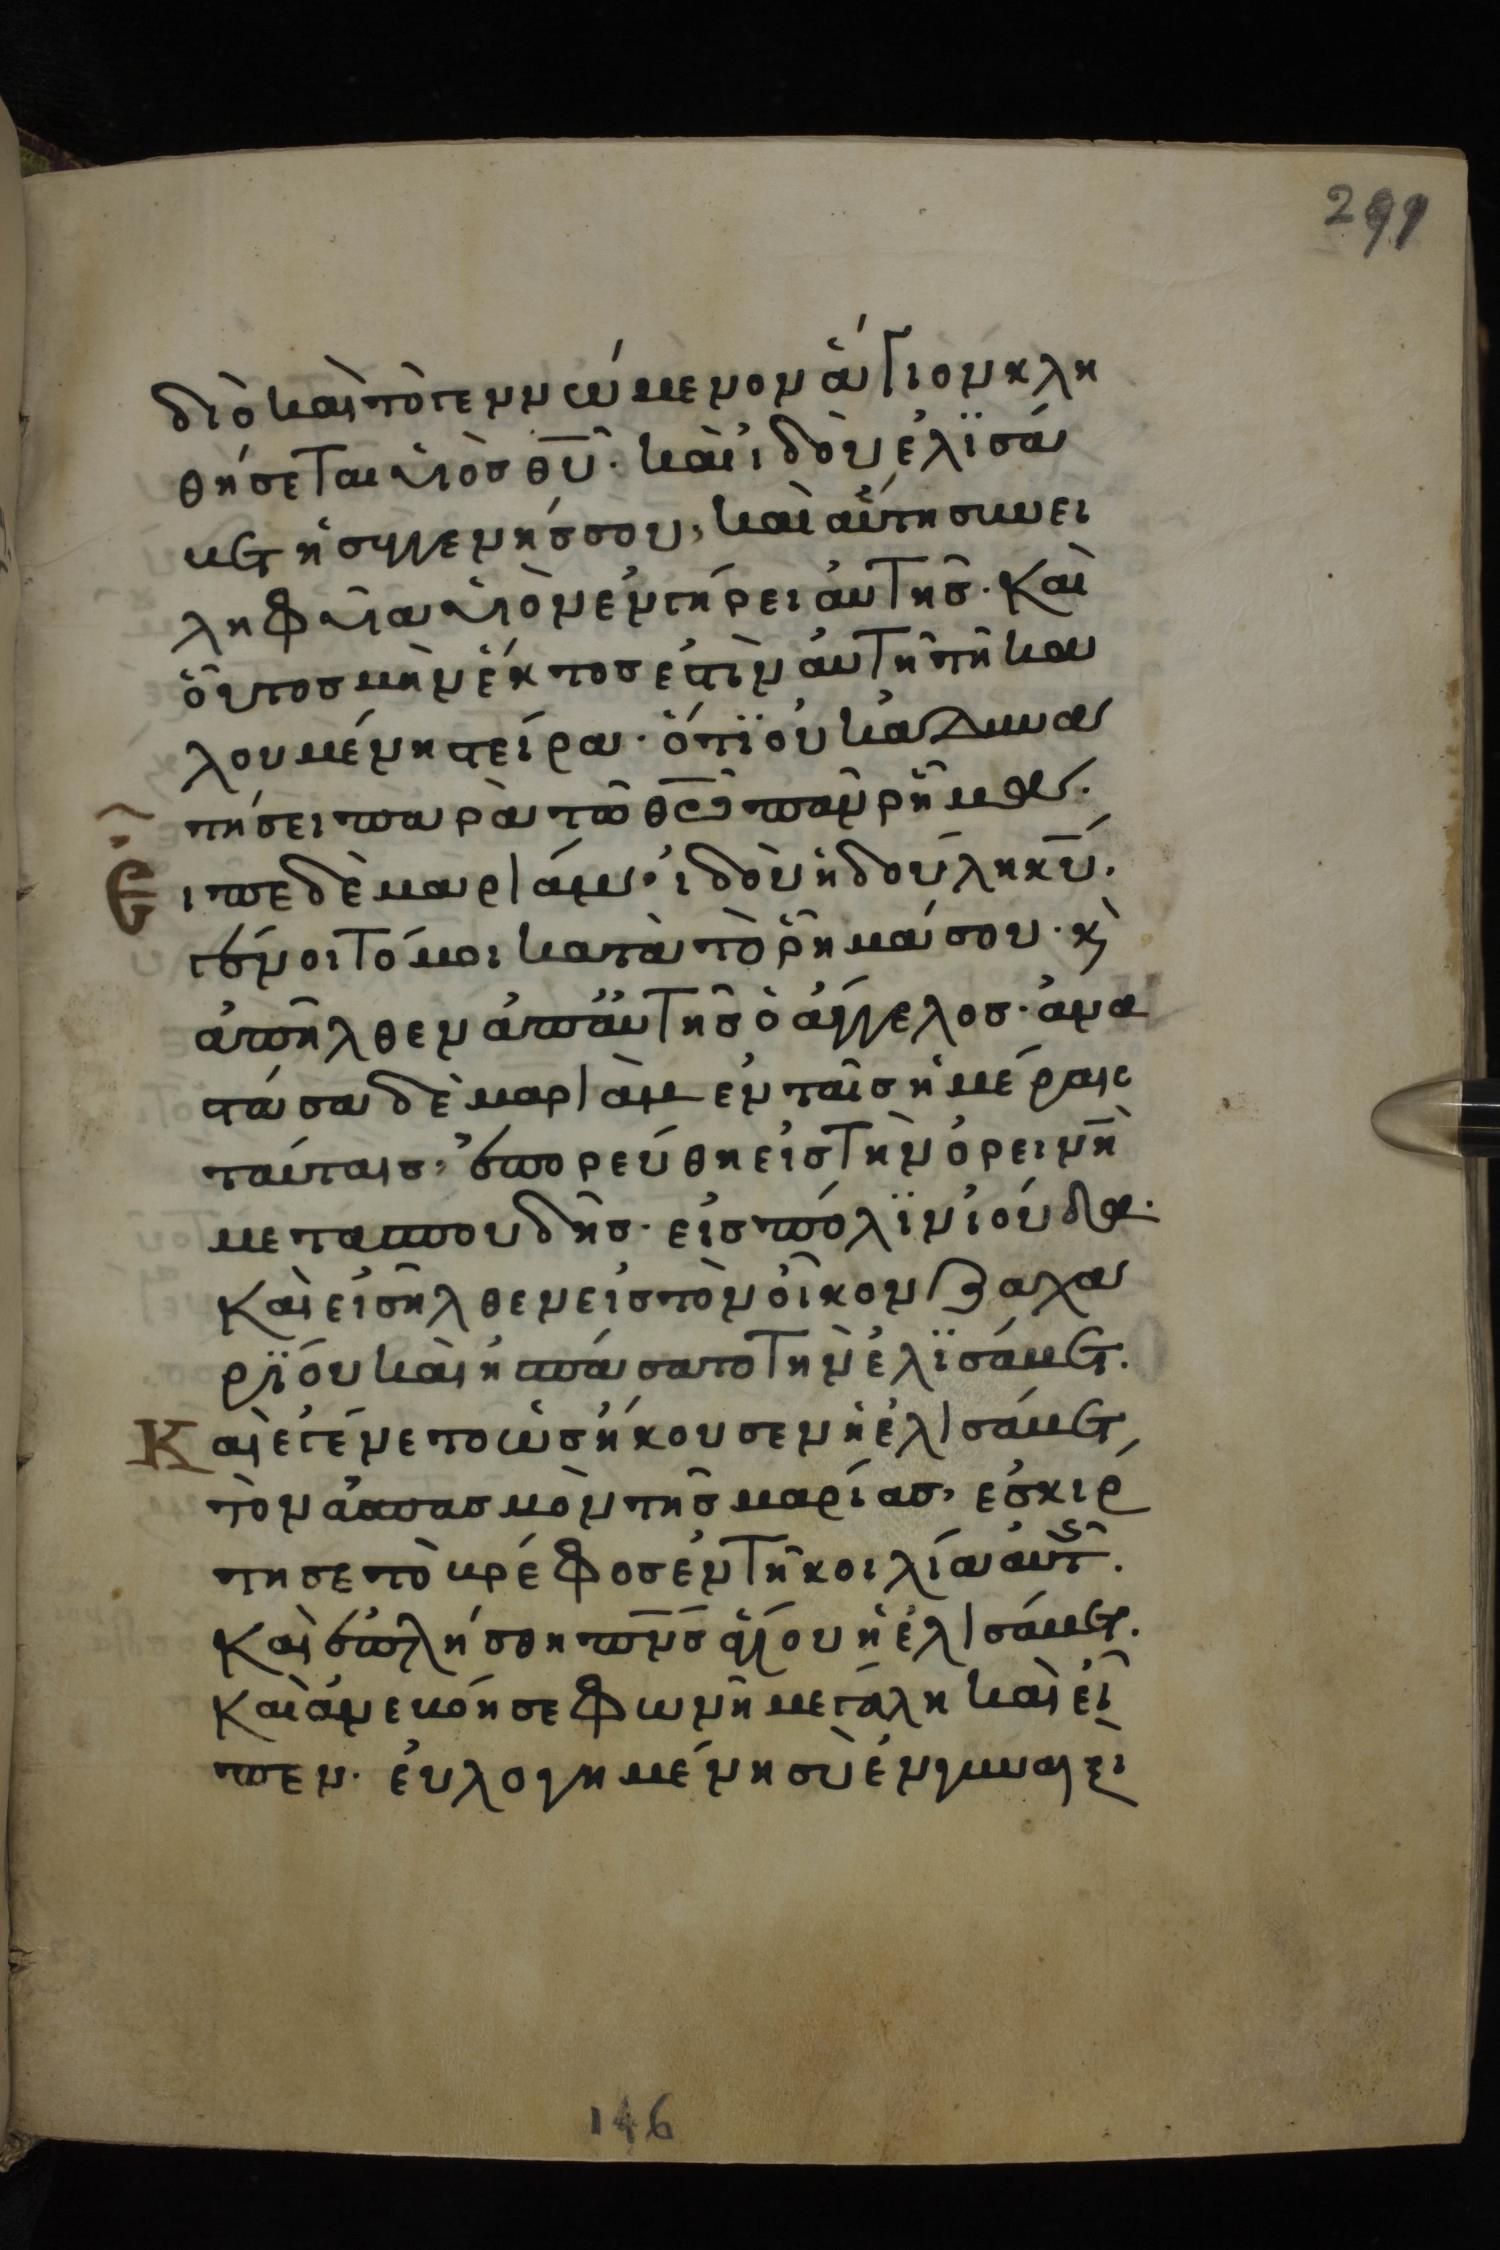 291
διὸ καὶ τὸ γεννώμενον ἅγιον κλη
θήσεται υἱὸς θ̅υ̅· καὶ ἰδοὺ ἐλϊσά
βετ ἡ συγγενής σου, καὶ αὕτη συνει
ληφυῖα υἱὸν ἐν γήρει αὐτῆς· Καὶ
οὗτος μὴν ἕκτος ἐστὶν αὐτῆ τῆ κα
λουμένη στείρα· ὅτϊ οὐκ ἀδυνα
τήσει παρὰ τῶ θ̅ω̅ πᾶν ῥῆμα·
Εἶπε δὲ μαριάμ· ἰδοὺ ἡ δούλη κ̅υ̅·
γένοιτό μοι κατὰ τὸ ῥῆμά σου· κ̀
ἀπῆλθεν ἀπ' αὐτῆς ὁ ἄγγελος· ἀνα
στάσα δὲ μαριὰμ ἐν ταῖς ἡμέραις
ταύταις, ἐπορεύθη εἰς τὴν ὀρεινὴ
μετα σπουδῆς· εἰς πόλϊν ἰούδα·
Καὶ εἰσῆλθεν εἰς τὸν οἶκον ζαχα
ρϊου καὶ ἠσπάσατο τὴν ἐλϊσάβετ·
Καὶ ἐγένετο ὡς ἤκουσεν ἡ ἐλισάβετ,
τὸν ἀσπασμὸν τῆς μαρίας, ἐσκίρ
τησε τὸ βρέφος ἐν τῆ κοιλία αὐτῆς·
Καὶ ἐπλήσθη π̅ν̅ς̅ ἁγίου ἡ ἐλισάβετ·
Καὶ ἀνεβόησε φωνῆ μεγάλη καὶ εἶ
πεν· εὐλογημένη σὺ ἐν γυναιξὶ
146